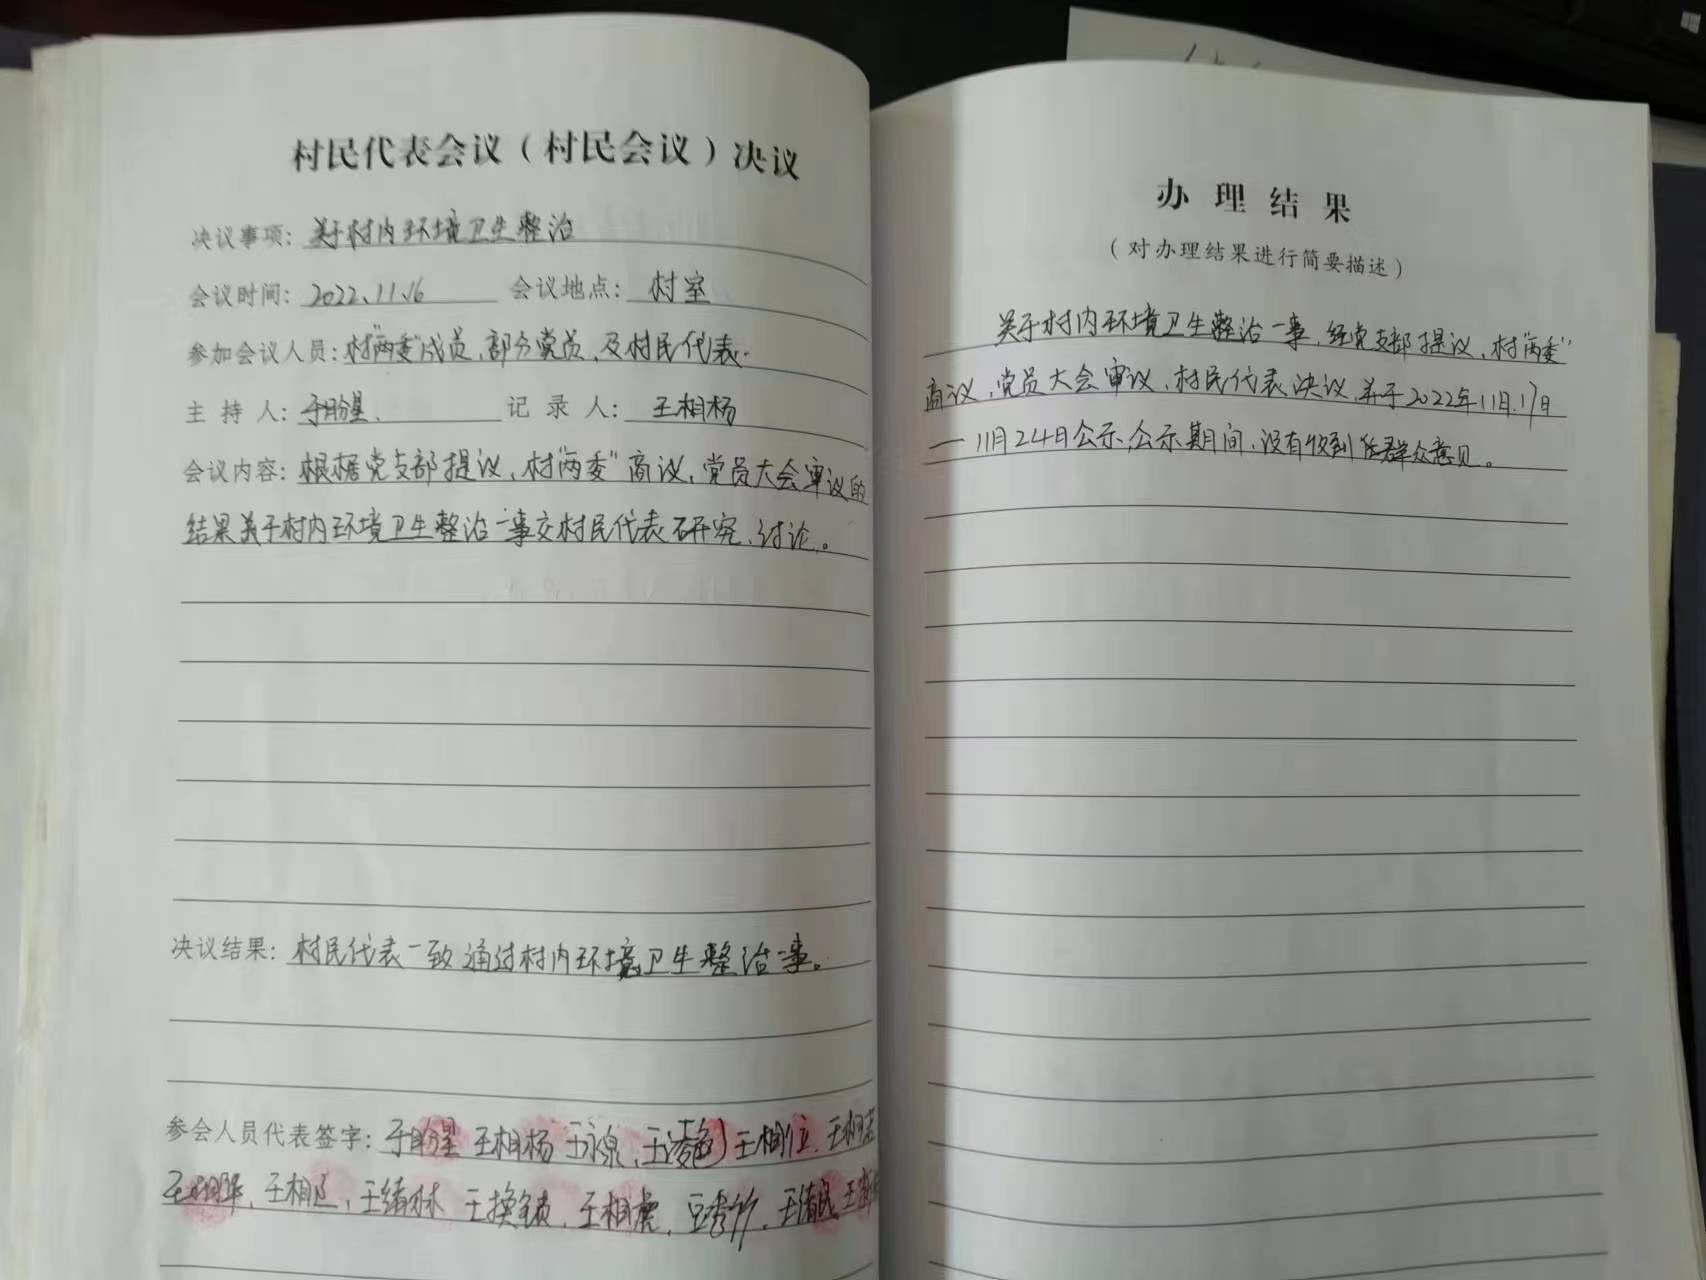 村民代表会议（村民会议）决议
决议事项：关于村内环境卫生整治
会议时间：2022.11.16 会议地点：村室
参加会议人员：村"两委"成员、部分党员、及村民代表.
主持人： 记录人：王相杨
会议内容：根据党支部提议、村"两委"商议，党员大会审议的
结果关于村内环境卫生整治一事交村民代表研究、讨论。
决议结果：村民代表一致通过村内环境卫生整治一事。
参会人员代表签字： 王相杨 王永泉、 王相位、
王相臣、王绪林 王换锁、王相虎、豆秀竹、王绪民
办理结果
（对办理结果进行简要描述）
关于村内环境卫生整治一事、经党支部提议、村"两委"
商议、党员大会审议、村民代表决议、并于2022年11月17日
—11月24日公示、公示期间、没有收到任群众意见。